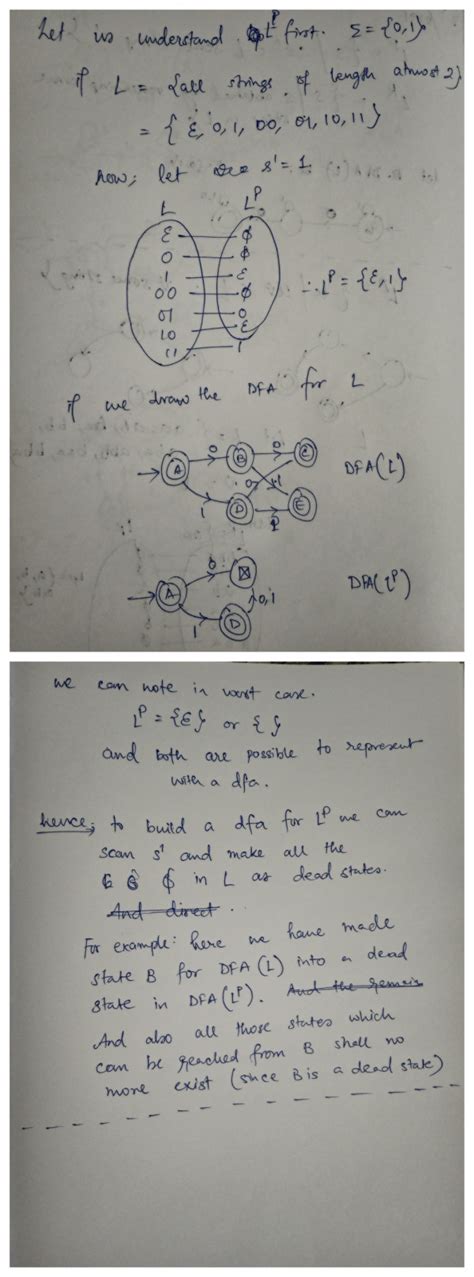 Let us understand L^P first. Σ = {0,1}
if L = {all strings of length atmost 2}
= { ε, 0, 1, 00, 01, 10, 11 }
now; let s' = 1
L L^P
ε ϕ
0 ϕ
1 ε
00 ϕ
01 0
10 ε
11 1
∴ L^P = {ε, 1}
if we draw the DFA for L
A 0 B 0 C
1 D 0 1 E
DFA(L)
A 0
1 D 0,1
DFA(L^P)
we can note in worst case.
L^P = {ε} or { }
and both are possible to represent
with a dfa.
hence; to build a dfa for L^P we can
scan s' and make all the
ϕ in L as dead states.
And direct .
For example: here we have made
state B for DFA (L) into a dead
state in DFA(L^P). And the remain
And also all those states which
can be reached from B shall no
more exist (since B is a dead state)